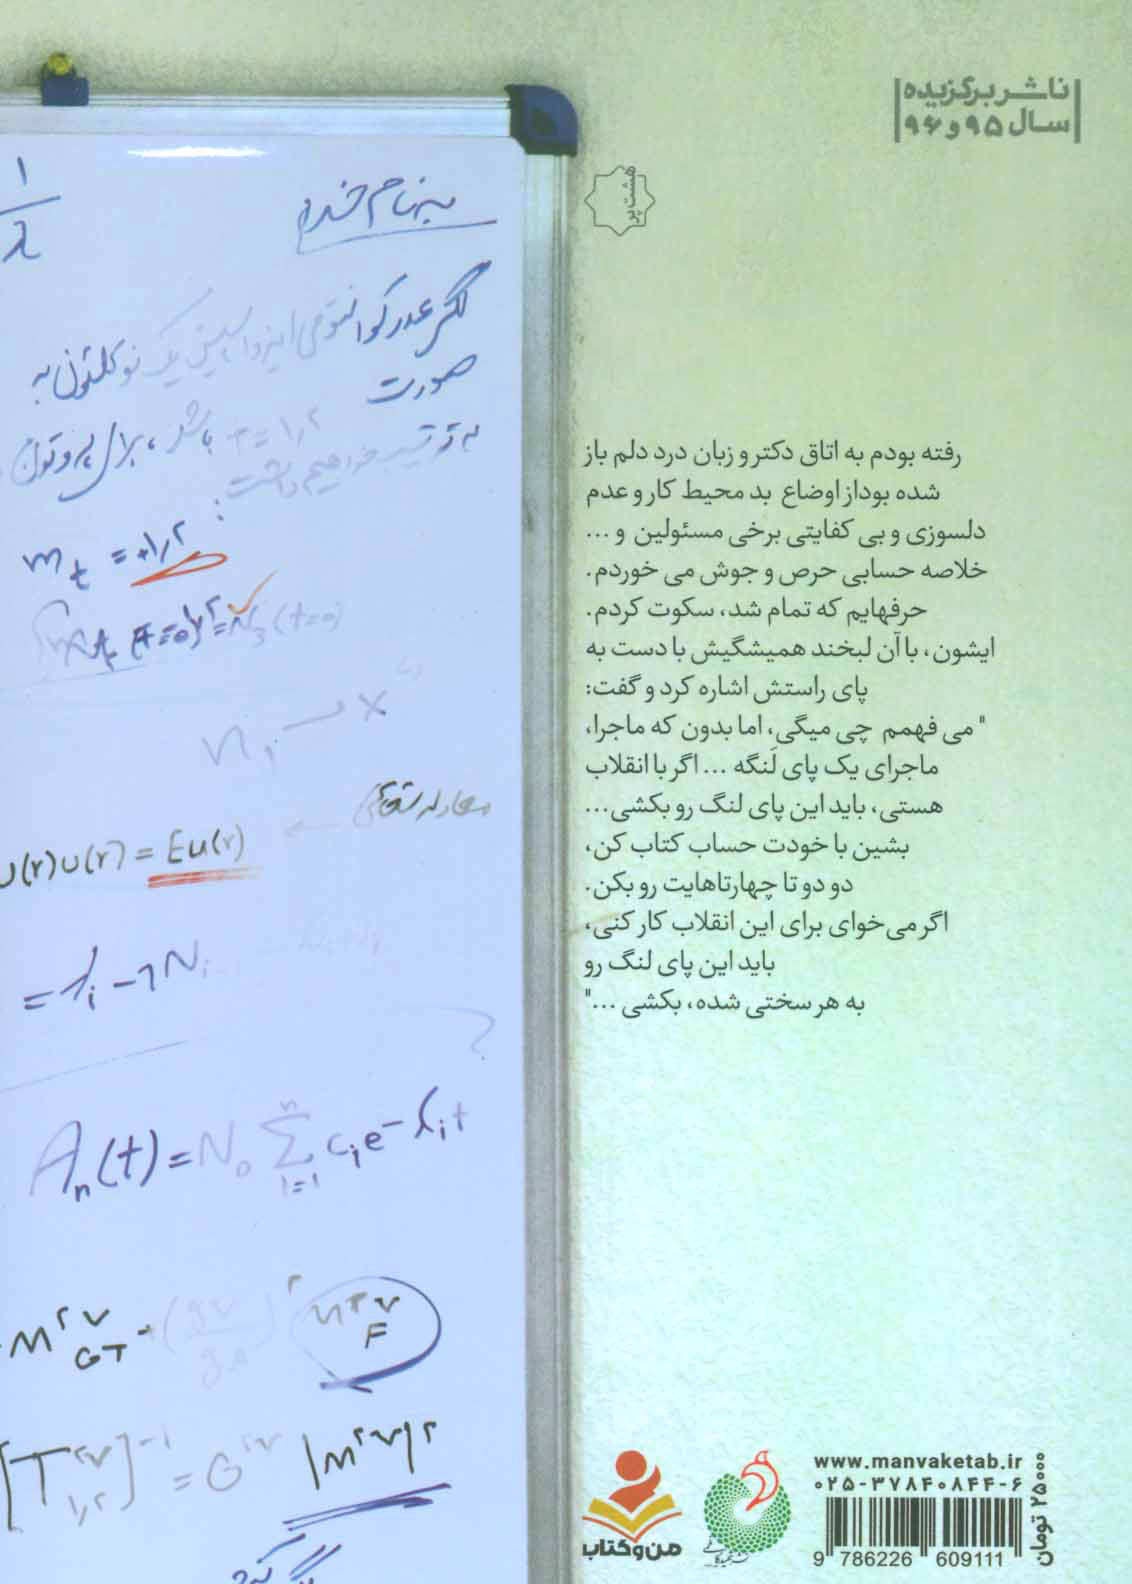 ناشر برگزیده
سال ۹۵ و ۹۶
هشت پر
رفته بودم به اتاق دکتر و زبان درد دلم باز
شده بود از اوضاع بد محیط کار و عدم
دلسوزی و بی کفایتی برخی مسئولین و ...
خلاصه حسابی حرص و جوش می خوردم.
حرفهایم که تمام شد، سکوت کردم.
ایشون، با آن لبخند همیشگیش با دست به
پای راستش اشاره کرد و گفت:
" می فهمم چی میگی، اما بدون که ماجرا،
ماجرای یک پای لَنگه ... اگر با انقلاب
هستی، باید این پای لنگ رو بکشی...
بشین با خودت حساب کتاب کن،
دو دو تا چهارتاهایت رو بکن.
اگر می‌خوای برای این انقلاب کار کنی،
باید این پای لنگ رو
به هر سختی شده، بکشی ..."
به نام خدا
۱
λ
اگر عدد کوانتومی ایزواسپین یک نوکلئون به
صورت
باشد، برای پروتون
به ترتیب خواهیم داشت:
m_t = +۱/۲
n₁ → x
معادله
U(r)u(r) = Eu(r)
A_n(t) = N₀ Σ c_i e^-λ_i t
n
i=1
M^۲ν GT
F
[T^۲ν ۱/۲]^-1 = G^۲ν |M^۲ν|^۲
www.manvaketab.ir
۰۲۵-۳۷۸۴۰۸۴۴-۶
۲۵۰۰۰ تومان
من و کتاب
9 786226 609111